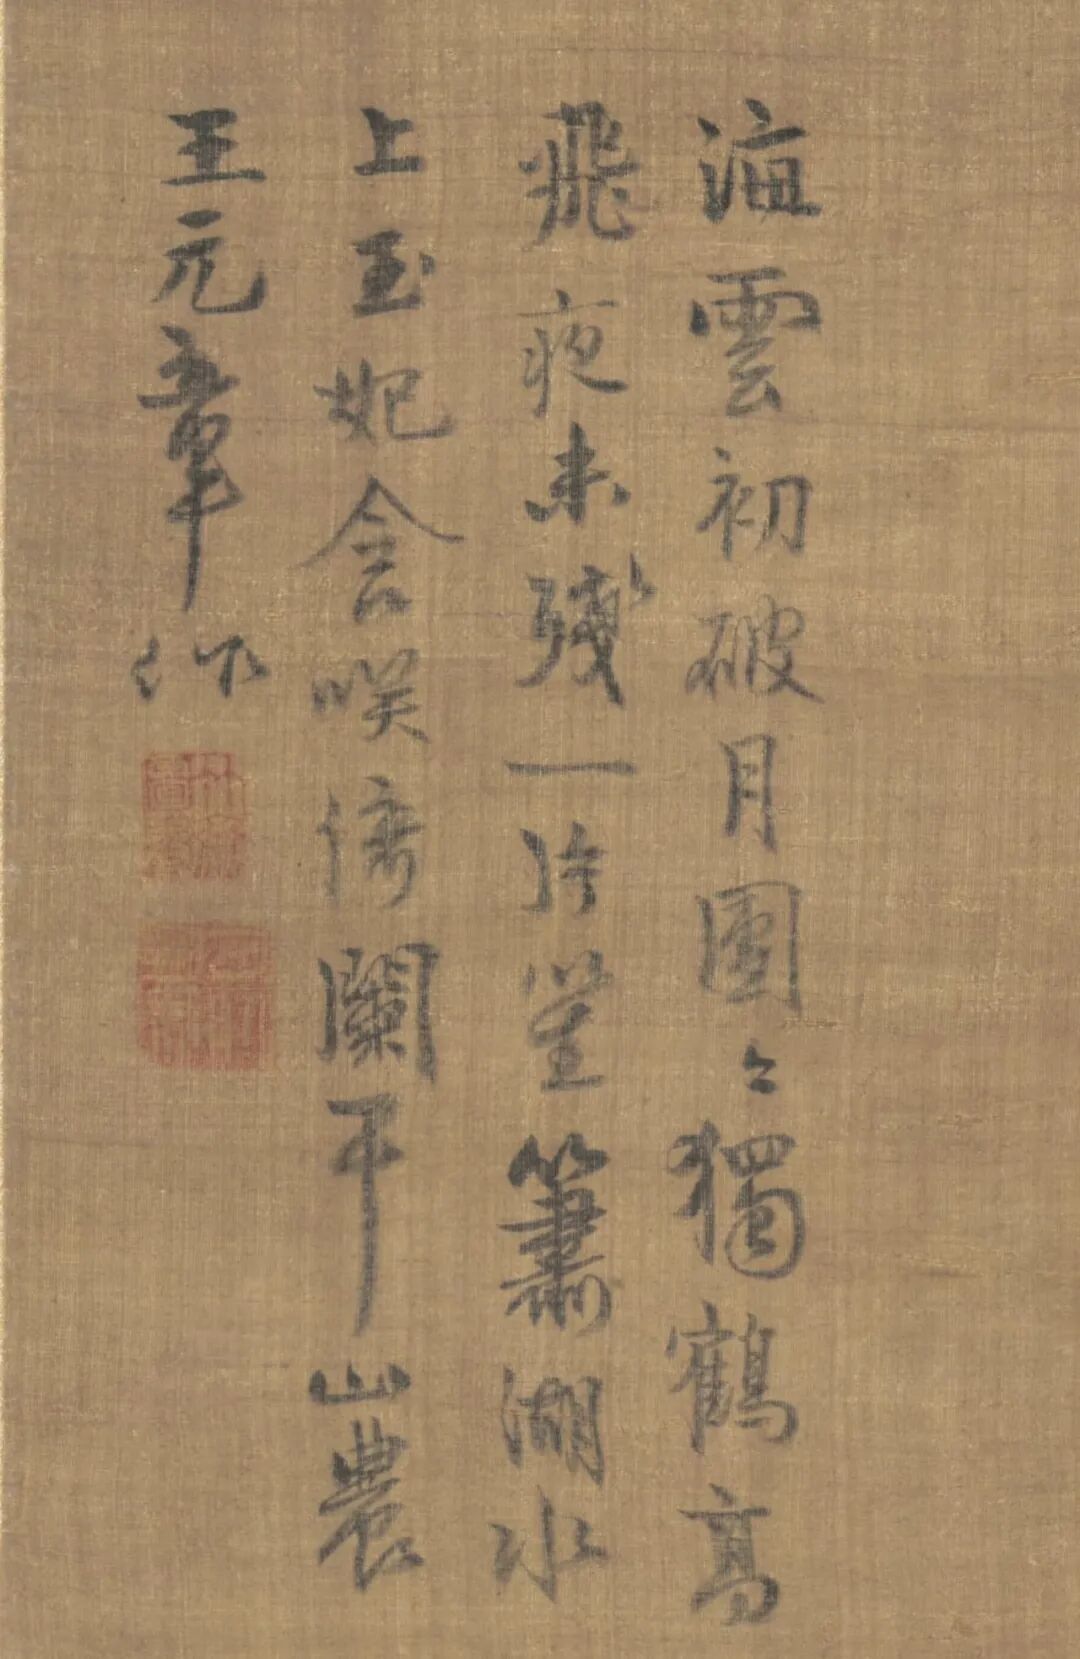 海雲初破月團〻獨鶴高
飛夜未殘一片笙簫湖水
上玉妃含咲倚闌干山農
王元章作